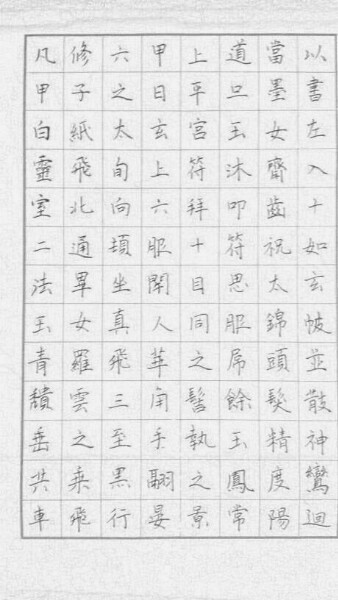 凡修六甲上道當以
甲子之日平旦墨書
白紙太玄宮玉女左
靈飛旬上符沐齊入
室北向六拜叩齒十
二通服十符祝如
法畢坐開目思太玄
玉女真人同服錦帔
青羅飛華之頭並
穨雲三角髻餘髮散
垂之至手執玉精神
共乘黑翮之鳳度鸞
車飛行晏景常陽迴